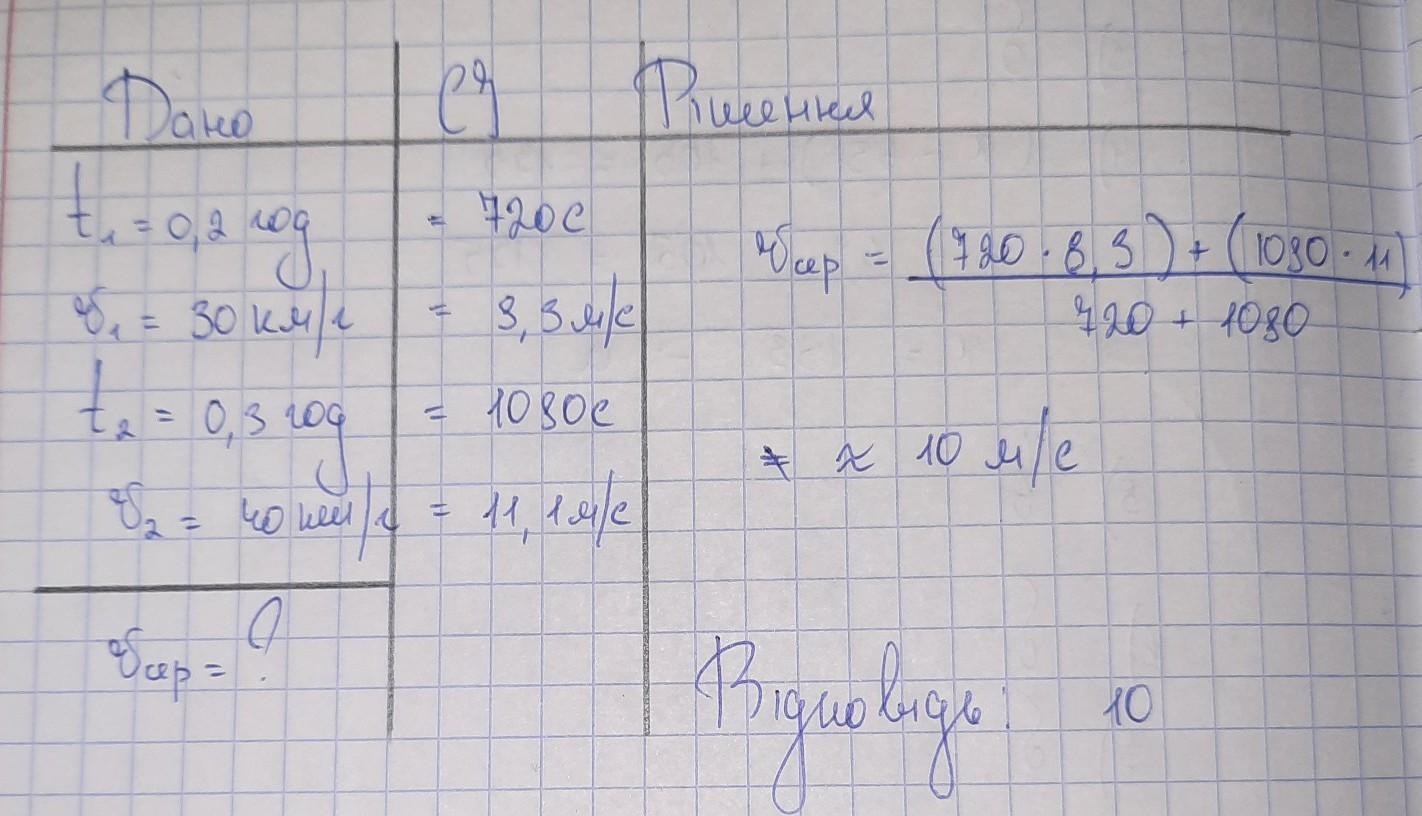 Дано СІ Рішення
t₁ = 0,2 год = 720с
v₁ = 30 км/г = 8,3 м/с
t₂ = 0,3 год = 1080с
v₂ = 40 км/г = 11,1 м/с
vсер = ?
vсер = (720 · 8,3) + (1080 · 11)
720 + 1080
≈ 10 м/с
Відповідь: 10